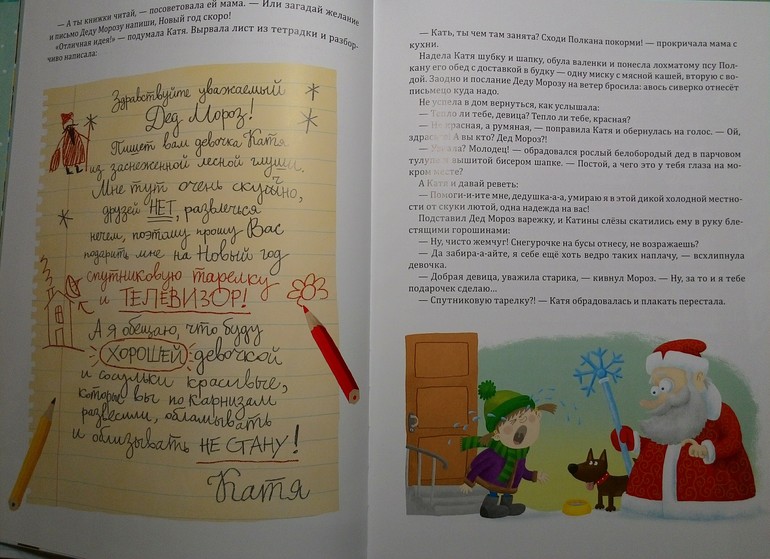 — А ты книжки читай, — посоветовала ей мама. — Или загадай желание
и письмо Деду Морозу напиши, Новый год скоро!
«Отличная идея!» — подумала Катя. Вырвала лист из тетрадки и разбор-
чиво написала:
Здравствуйте уважаемый
Дед Мороз!
Пишет вам девочка Катя
из заснеженной лесной глуши.
Мне тут очень скучно,
друзей НЕТ, развлечься
нечем, поэтому прошу Вас
подарить мне на Новый год
спутниковую тарелку
и ТЕЛЕВИЗОР!
А я обещаю, что буду
ХОРОШЕЙ девочкой
и сосульки красивые,
которые вы по карнизам
развесили, обламывать
и облизывать НЕ СТАНУ!
Катя
— Кать, ты чем там занята? Сходи Полкана покорми! — прокричала мама с
кухни.
Надела Катя шубку и шапку, обула валенки и понесла лохматому псу Пол-
кану его обед с доставкой в будку — одну миску с мясной кашей, вторую с во-
дой. Заодно и послание Деду Морозу на ветер бросила: авось сиверко отнесёт
письмецо куда надо.
Не успела в дом вернуться, как услышала:
— Тепло ли тебе, девица? Тепло ли тебе, красная?
— Не красная, а румяная, — поправила Катя и обернулась на голос. — Ой,
А вы кто? Дед Мороз?!
— Узнала? Молодец! — обрадовался рослый белобородый дед в парчовом
тулупе и вышитой бисером шапке. — Постой, а чего это у тебя глаза на мо-
кром месте?
А Катя и давай реветь:
— Помоги-и-ите мне, дедушка-а-а, умираю я в этой дикой холодной местно-
сти от скуки лютой, одна надежда на вас!
Подставил Дед Мороз варежку, и Катины слёзы скатились ему в руку бле-
стящими горошинами:
— Ну, чисто жемчуг! Снегурочке на бусы отнесу, не возражаешь?
— Да забира-а-айте, я себе ещё хоть ведро таких наплачу, — всхлипнула
девочка.
— Добрая девица, уважила старика, — кивнул Мороз. — Ну, за то и я тебе
подарочек сделаю...
— Спутниковую тарелку?! — Катя обрадовалась и плакать перестала.